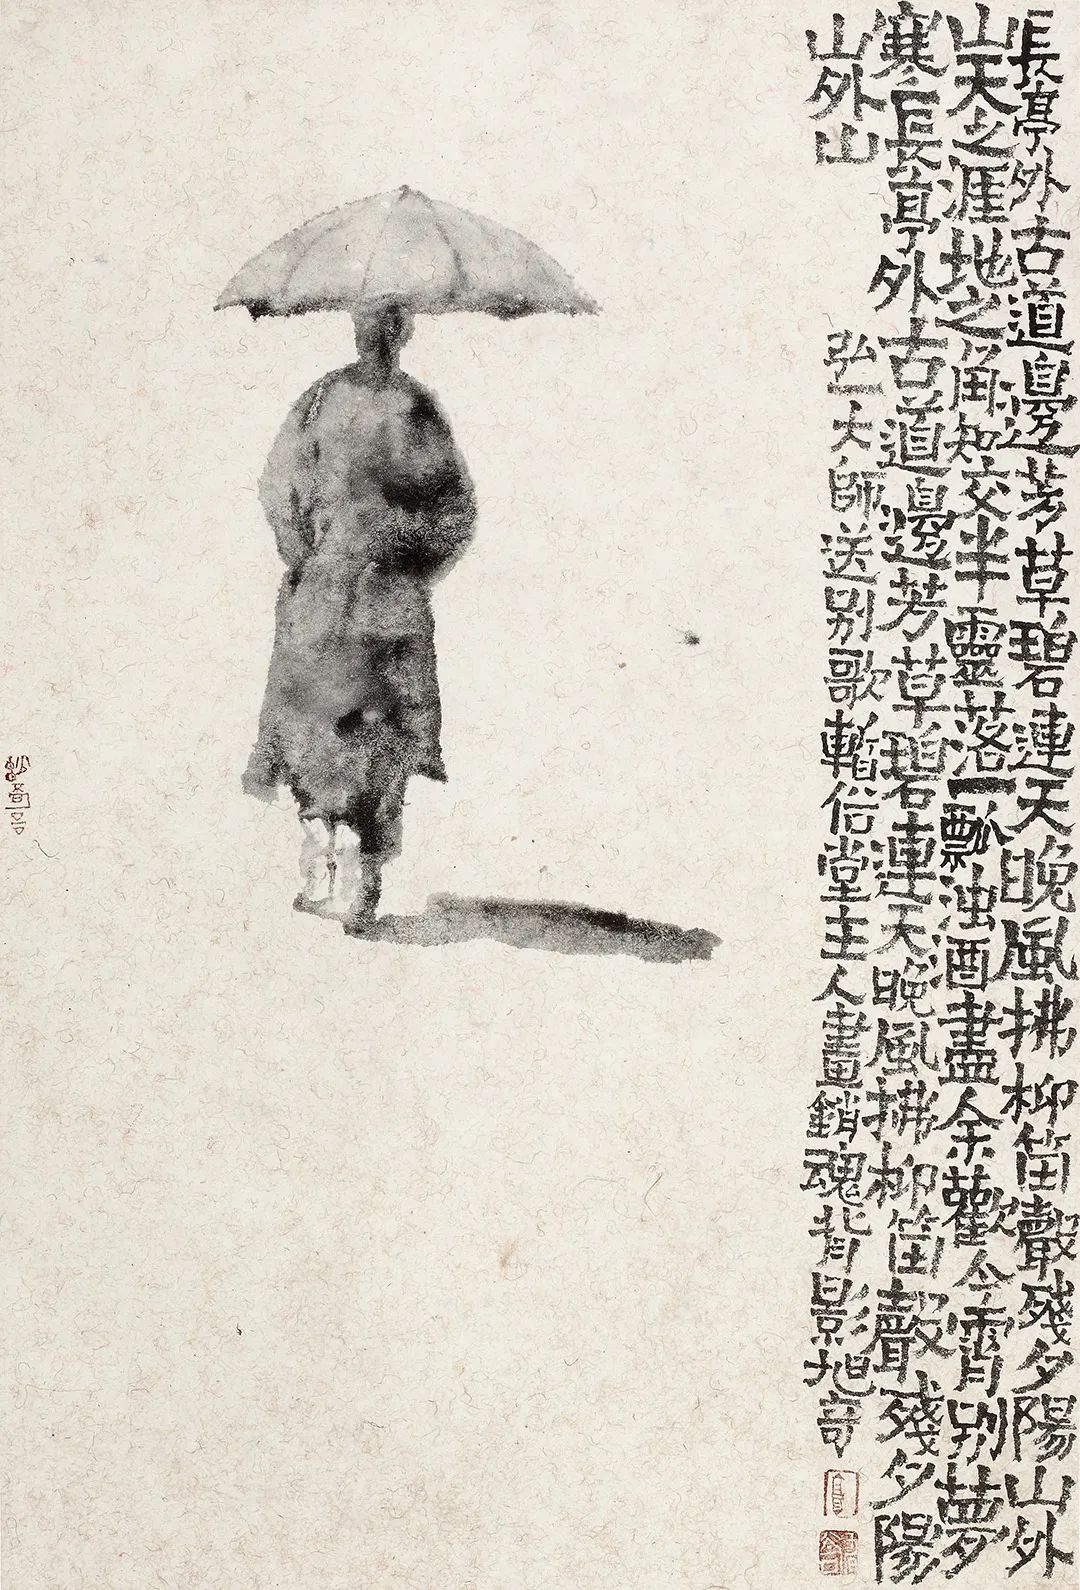 長亭外古道邊芳草碧連天晚風拂柳笛聲殘夕陽山外
山天之涯地之角知交半靈落一瓢浊酒盡余歡今宵别夢
寒長亭外古道邊芳草碧連天晚風拂柳笛聲殘夕陽
山外山
弘一大師送别歌暫堂主人畫銷魂背影旭奇